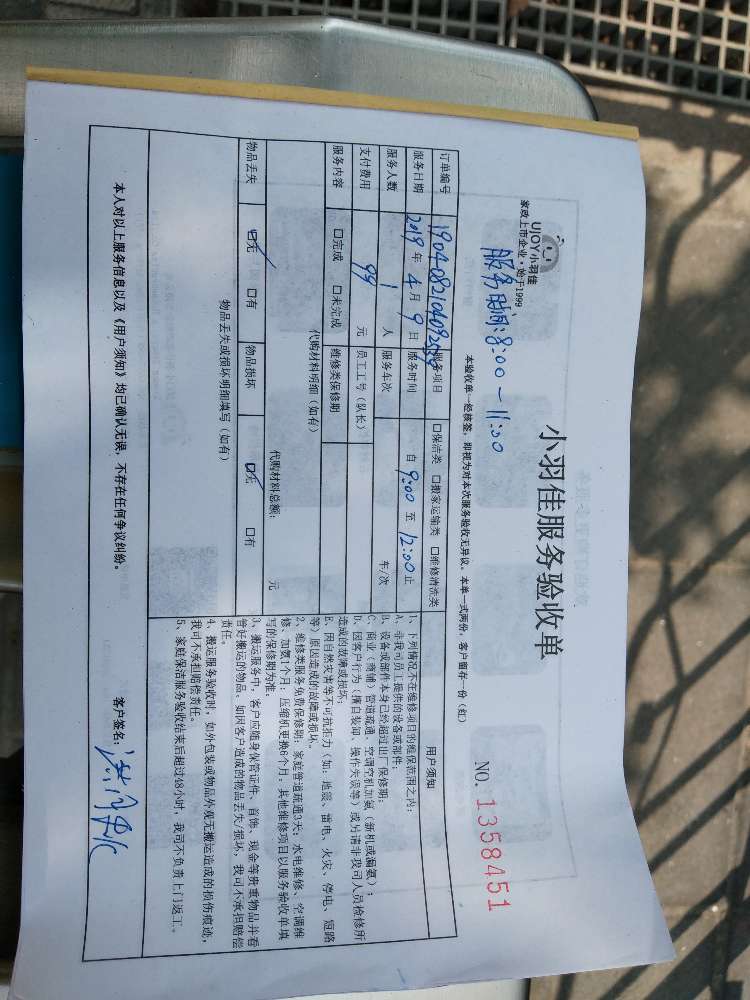 UJOY小羽佳
家政上市企业·始于1999
小羽佳服务验收单
服务时间:8:00-11:00
NO. 1358451
本验收单一经核签，即视为对本次服务验收无异议。本单一式两份，客户留存一份（红）
订单编号 服务项目 □保洁类 □搬家运输类 □维修清洗类
服务日期 2019 年 4 月 9 日 服务时间 自 9:00 至 12:00 止
服务人数 1 人 服务车次 车/次
支付费用 99 元 员工工号（队长）
服务内容 □完成 □未完成 维修类保修期
代购材料明细（如有）
代购材料总额： 元
物品丢失 ☑无 □有 物品损坏 ☑无 □有
物品丢失或损坏明细填写（如有）
用户须知
1、下列情况不在维修项目的维保范围之内：
A、非我司员工提供的设备或部件；
B、设备或部件本身已经超过出厂保修期；
C、商业（商铺）管道疏通、空调空机加氨（新机或漏氨）；
D、因客户行为（擅自装卸、操作失误等）或另请非我司人员检修所
造成的故障或损坏；
E、因自然灾害等不可抗拒力（如：地震、雷电、火灾、停电、短路
等）原因造成的故障或损坏。
2、维修类服务免费保修期：家庭管道疏通3天；水电维修、空调维
修、加氨1个月；压缩机更换6个月；其他维修项目以服务验收单填
写的保修期为准。
3、搬运服务中，客户应随身保管证件、首饰、现金等贵重物品并看
管好搬运的物品，如因客户造成的物品丢失/损坏，我司不承担赔偿
责任。
4、搬运服务验收时，如外包装或物品外观无搬运造成的损伤痕迹，
我司不承担赔偿责任。
5、家庭保洁服务验收结束后超过48小时，我司不负责上门返工。
本人对以上服务信息以及《用户须知》均已确认无误，不存在任何争议纠纷。
客户签名：